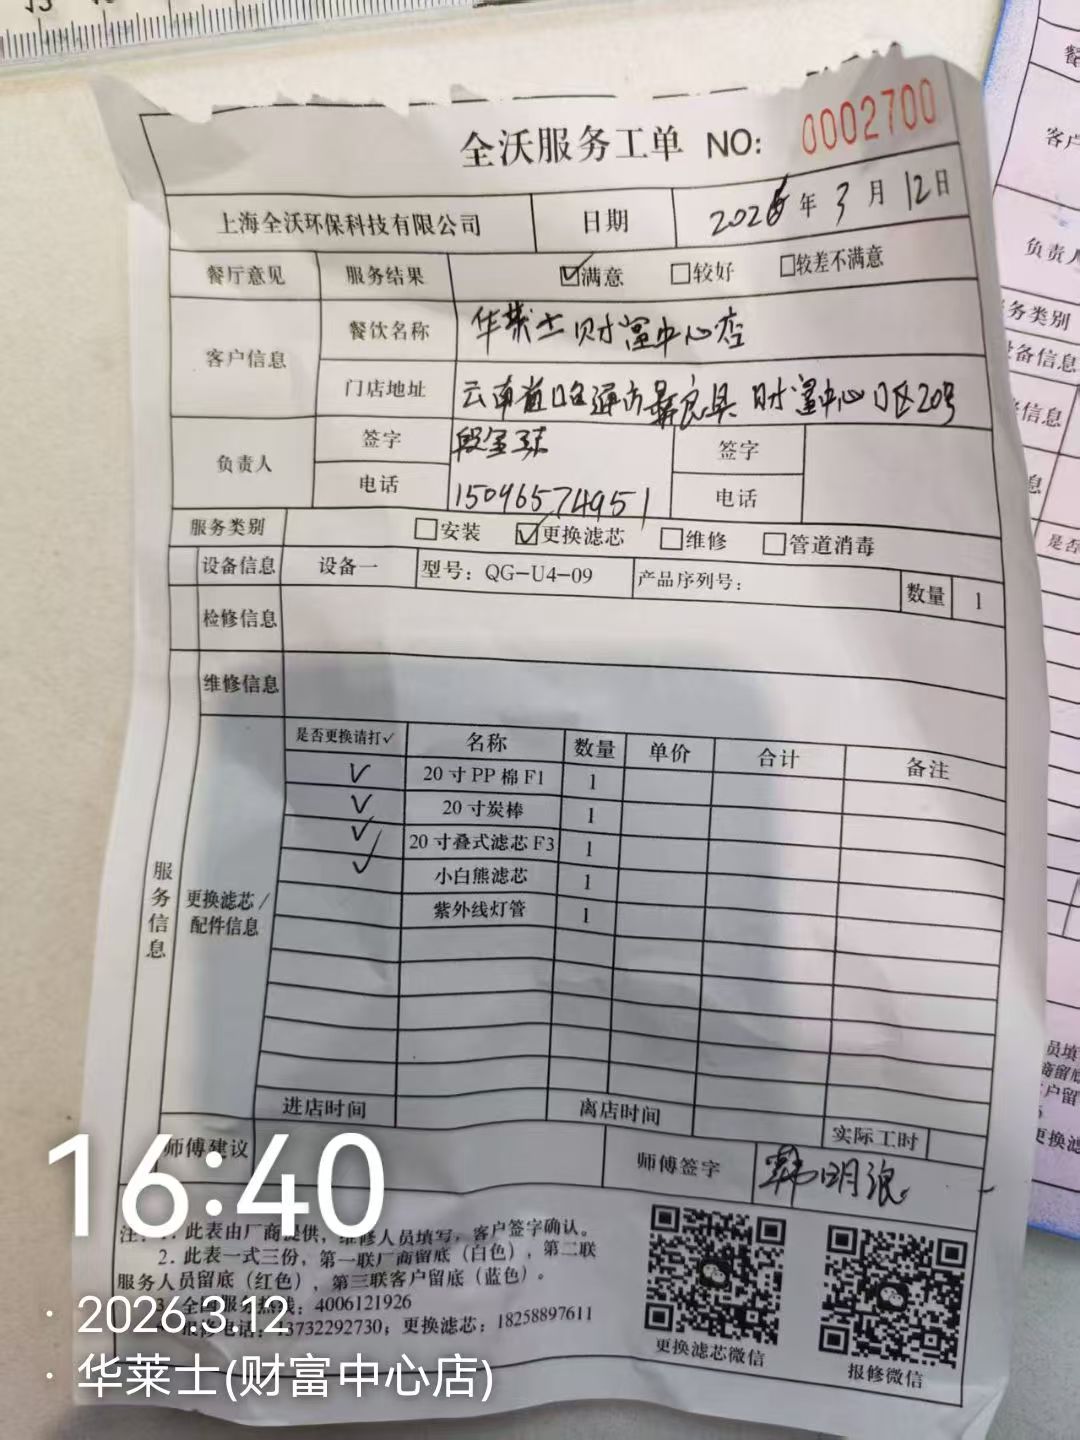 全沃服务工单 NO: 0002700
上海全沃环保科技有限公司 日期 2026年3月12日
餐厅意见 服务结果 ☑满意 □较好 □较差不满意
客户信息 餐饮名称 华莱士财富中心店
门店地址 云南省昭通市彝良县财富中心D区20号
负责人 签字 签字
电话 15096574951 电话
服务类别 □安装 ☑更换滤芯 □维修 □管道消毒
设备信息 设备一 型号：QG-U4-09 产品序列号： 数量 1
检修信息
维修信息
服务信息
更换滤芯/配件信息
是否更换请打✓ 名称 数量 单价 合计 备注
✓ 20寸PP棉F1 1
✓ 20寸炭棒 1
✓ 20寸叠式滤芯F3 1
✓ 小白熊滤芯 1
紫外线灯管 1
进店时间 离店时间 实际工时
师傅建议 师傅签字 韩明浪
注：1. 此表由厂商提供，维修人员填写，客户签字确认。
2. 此表一式三份，第一联厂商留底（白色），第二联
服务人员留底（红色），第三联客户留底（蓝色）。
3. 全国服务热线：4006121926
报修电话：13732292730；更换滤芯：18258897611
更换滤芯微信 报修微信
16:40
· 2026.3.12
· 华莱士(财富中心店)
客户
负责人
服务类别
设备信息